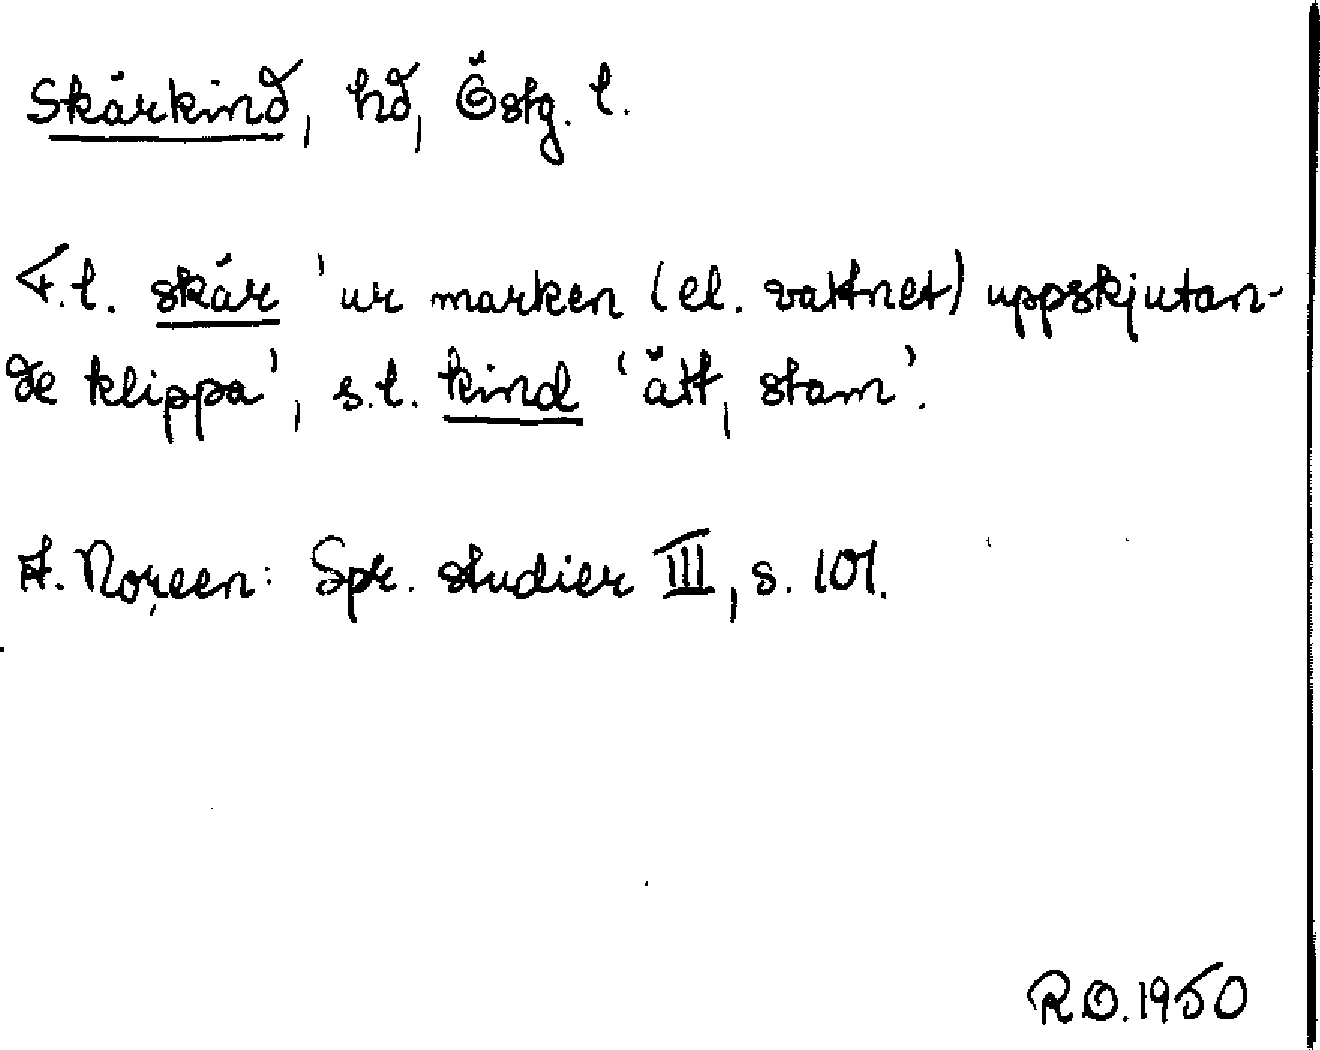 Skärkind, hd, Östg. l.
F.l. skär 'ur marken (el. vattnet) uppskjutan-
de klippa', s.l. kind 'ätt, stam'.
A. Noreen: Spr. studier III, s. 101.
R.O. 1950